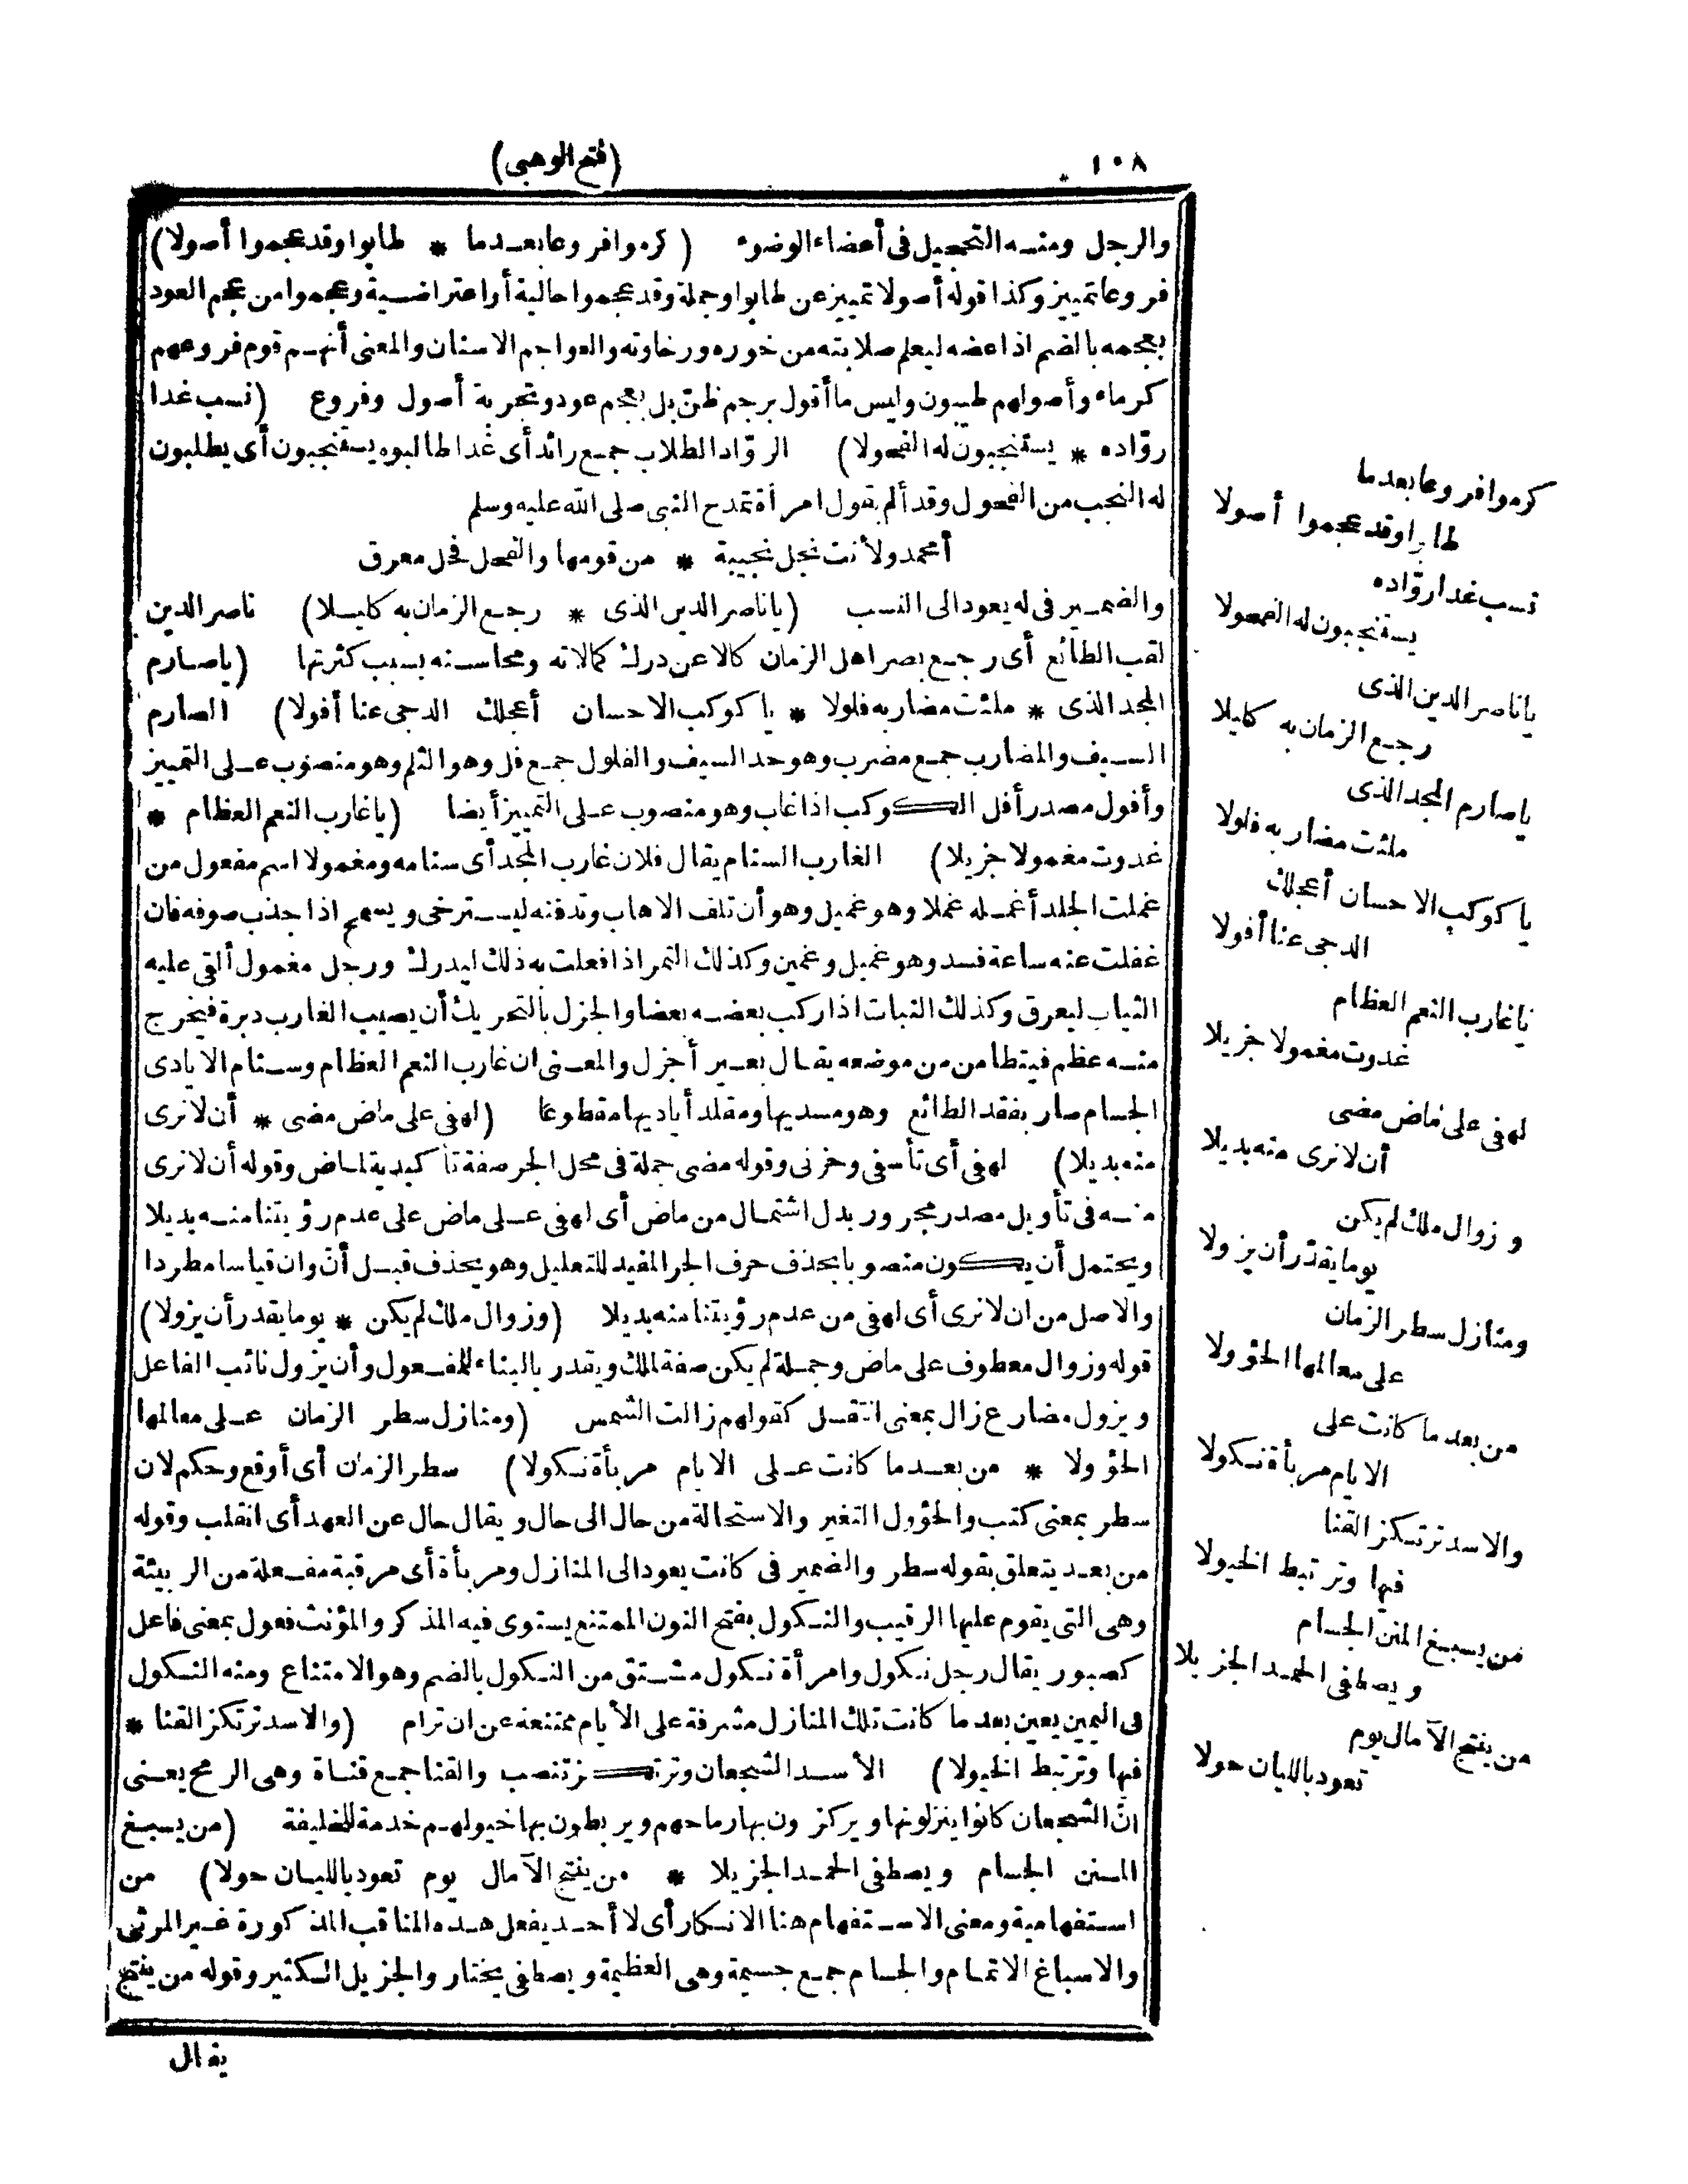 ١٠٨
(فتح الوهبى)
والرجل ومنه التحجيل فى أعضاء الوضوء (كرموا فروعا بعدما * طابوا وقد عجموا أصولا)
فروعا تمييز وكذا قوله أصولا تمييز عن طابوا وجملة وقد عجموا حالية أو اعتراضية وعجموا من عجم العود
يعجمه بالضم اذا عضه ليعلم صلابته من خوره ورخاوته والعواجم الاسنان والمعنى أنهم قوم فروعهم
كرماء وأصولهم طيبون وليس ما أقول برجم ظنّ بل بعجم عود وتجربة أصول وفروع (نسب غدا
روّاده * يستنجبون له الفحولا) الروّاد الطلاب جمع رائد أى غدا طالبوه يستنجبون أى يطلبون
له النجب من الفحول وقد ألم بقول امرأة تمدح النبى صلى الله عليه وسلم
أمحمد ولأنت نجل نجيبة * من قومها والفحل فحل معرق
والضمير فى له يعود الى النسب (يا ناصر الدين الذى * رجع الزمان به كليلا) ناصر الدين
لقب الطائع أى رجع بصر اهل الزمان كالا عن درك كمالاته ومحاسنه بسبب كثرتها (يا صارم
المجد الذى * ملئت مضاربه فلولا * يا كوكب الاحسان أعجلك الدجى عنا أفولا) الصارم
السيف والمضارب جمع مضرب وهو حد السيف والفلول جمع فل وهو الثلم وهو منصوب على التمييز
وأفول مصدر أفل الكوكب اذا غاب وهو منصوب على التمييز أيضا (يا غارب النعم العظام *
غدوت مغمولا جزيلا) الغارب السنام يقال فلان غارب المجد أى سنامه ومغمولا اسم مفعول من
غملت الجلد أغمله غملا وهو غميل وهو أن تلف الاهاب وتدفنه ليسترخى ويسمح اذا جذب صوفه فان
غفلت عنه ساعة فسد وهو غميل وغمين وكذلك التمر اذا فعلت به ذلك ليدرك ورجل مغمول ألقى عليه
الثياب ليعرق وكذلك النبات اذا ركب بعضه بعضا والجزل بالتحريك أن يصيب الغارب دبرة فيخرج
منه عظم فيتطامن من موضعه يقال بعير أجزل والمعنى ان غارب النعم العظام وسنام الايادى
الجسام صار بفقد الطائع وهو مسديها ومقلد أياديها مقطوعا (لهفى على ماض مضى * أن لا نرى
منه بديلا) لهفى أى تأسفى وحزنى وقوله مضى جملة فى محل الجر صفة تأكيدية لماض وقوله أن لا نرى
منه فى تأويل مصدر مجرور بدل اشتمال من ماض أى لهفى على ماض على عدم رؤيتنا منه بديلا
ويحتمل أن يكون منصوبا بحذف حرف الجر المفيد للتعليل وهو يحذف قبل أنّ وان قياسا مطردا
والاصل من ان لا نرى أى لهفى من عدم رؤيتنا منه بديلا (وزوال ملك لم يكن * يوما يقدر أن يزولا)
قوله وزوال معطوف على ماض وجملة لم يكن صفة لملك ويقدر بالبناء للمفعول وأن يزول نائب الفاعل
ويزول مضارع زال بمعنى انتقل كقولهم زالت الشمس (ومنازل سطر الزمان على معالمها
الحؤولا * من بعد ما كانت على الايام مربأة نكولا) سطر الزمان أى أوقع وحكم لان
سطر بمعنى كتب والحؤول التغير والاستحالة من حال الى حال ويقال حال عن العهد أى انقلب وقوله
من بعد يتعلق بقوله سطر والضمير فى كانت يعود الى المنازل ومربأة أى مرقبة مفعلة من الربيئة
وهى التى يقوم عليها الرقيب والنكول بفتح النون الممتنع يستوى فيه المذكر والمؤنث فعول بمعنى فاعل
كصبور يقال رجل نكول وامرأة نكول مشتق من النكول بالضم وهو الامتناع ومنه النكول
فى اليمين يعنى بعد ما كانت تلك المنازل مشرفة على الأيام ممتنعة عن ان ترام (والاسد ترتكز القنا *
فيها وترتبط الخيولا) الأسد الشجعان وترتكز تنصب والقنا جمع قناة وهى الرمح يعنى
انّ الشجعان كانوا ينزلونها ويركزون بها رماحهم ويربطون بها خيولهم خدمة للخليفة (من يسبغ
المنن الجسام ويصطفى الحمد الجزيلا * من يفتح الآمال يوم تعود بالليان حولا) من
استفهامية ومعنى الاستفهام هنا الانكار أى لا أحد يفعل هذه المناقب المذكورة غير المرثى
والاسباغ الاتمام والجسام جمع جسيمة وهى العظيمة ويصطفى يختار والجزيل الكثير وقوله من يفتح
يقال
كرموا فروعا بعد ما
طابوا وقد عجموا أصولا
نسب غدا روّاده
يستنجبون له الفحولا
يا ناصر الدين الذى
رجع الزمان به كليلا
يا صارم المجد الذى
ملئت مضاربه فلولا
يا كوكب الاحسان أعجلك
الدجى عنا أفولا
يا غارب النعم العظام
غدوت مغمولا جزيلا
لهفى على ماض مضى
أن لا نرى منه بديلا
وزوال ملك لم يكن
يوما يقدّر أن يزولا
ومنازل سطر الزمان
على معالمها الحؤولا
من بعد ما كانت على
الايام مربأة نكولا
والاسد ترتكز القنا
فيها وترتبط الخيولا
من يسبغ المنن الجسام
ويصطفى الحمد الجزيلا
من يفتح الآمال يوم
تعود بالليان حولا